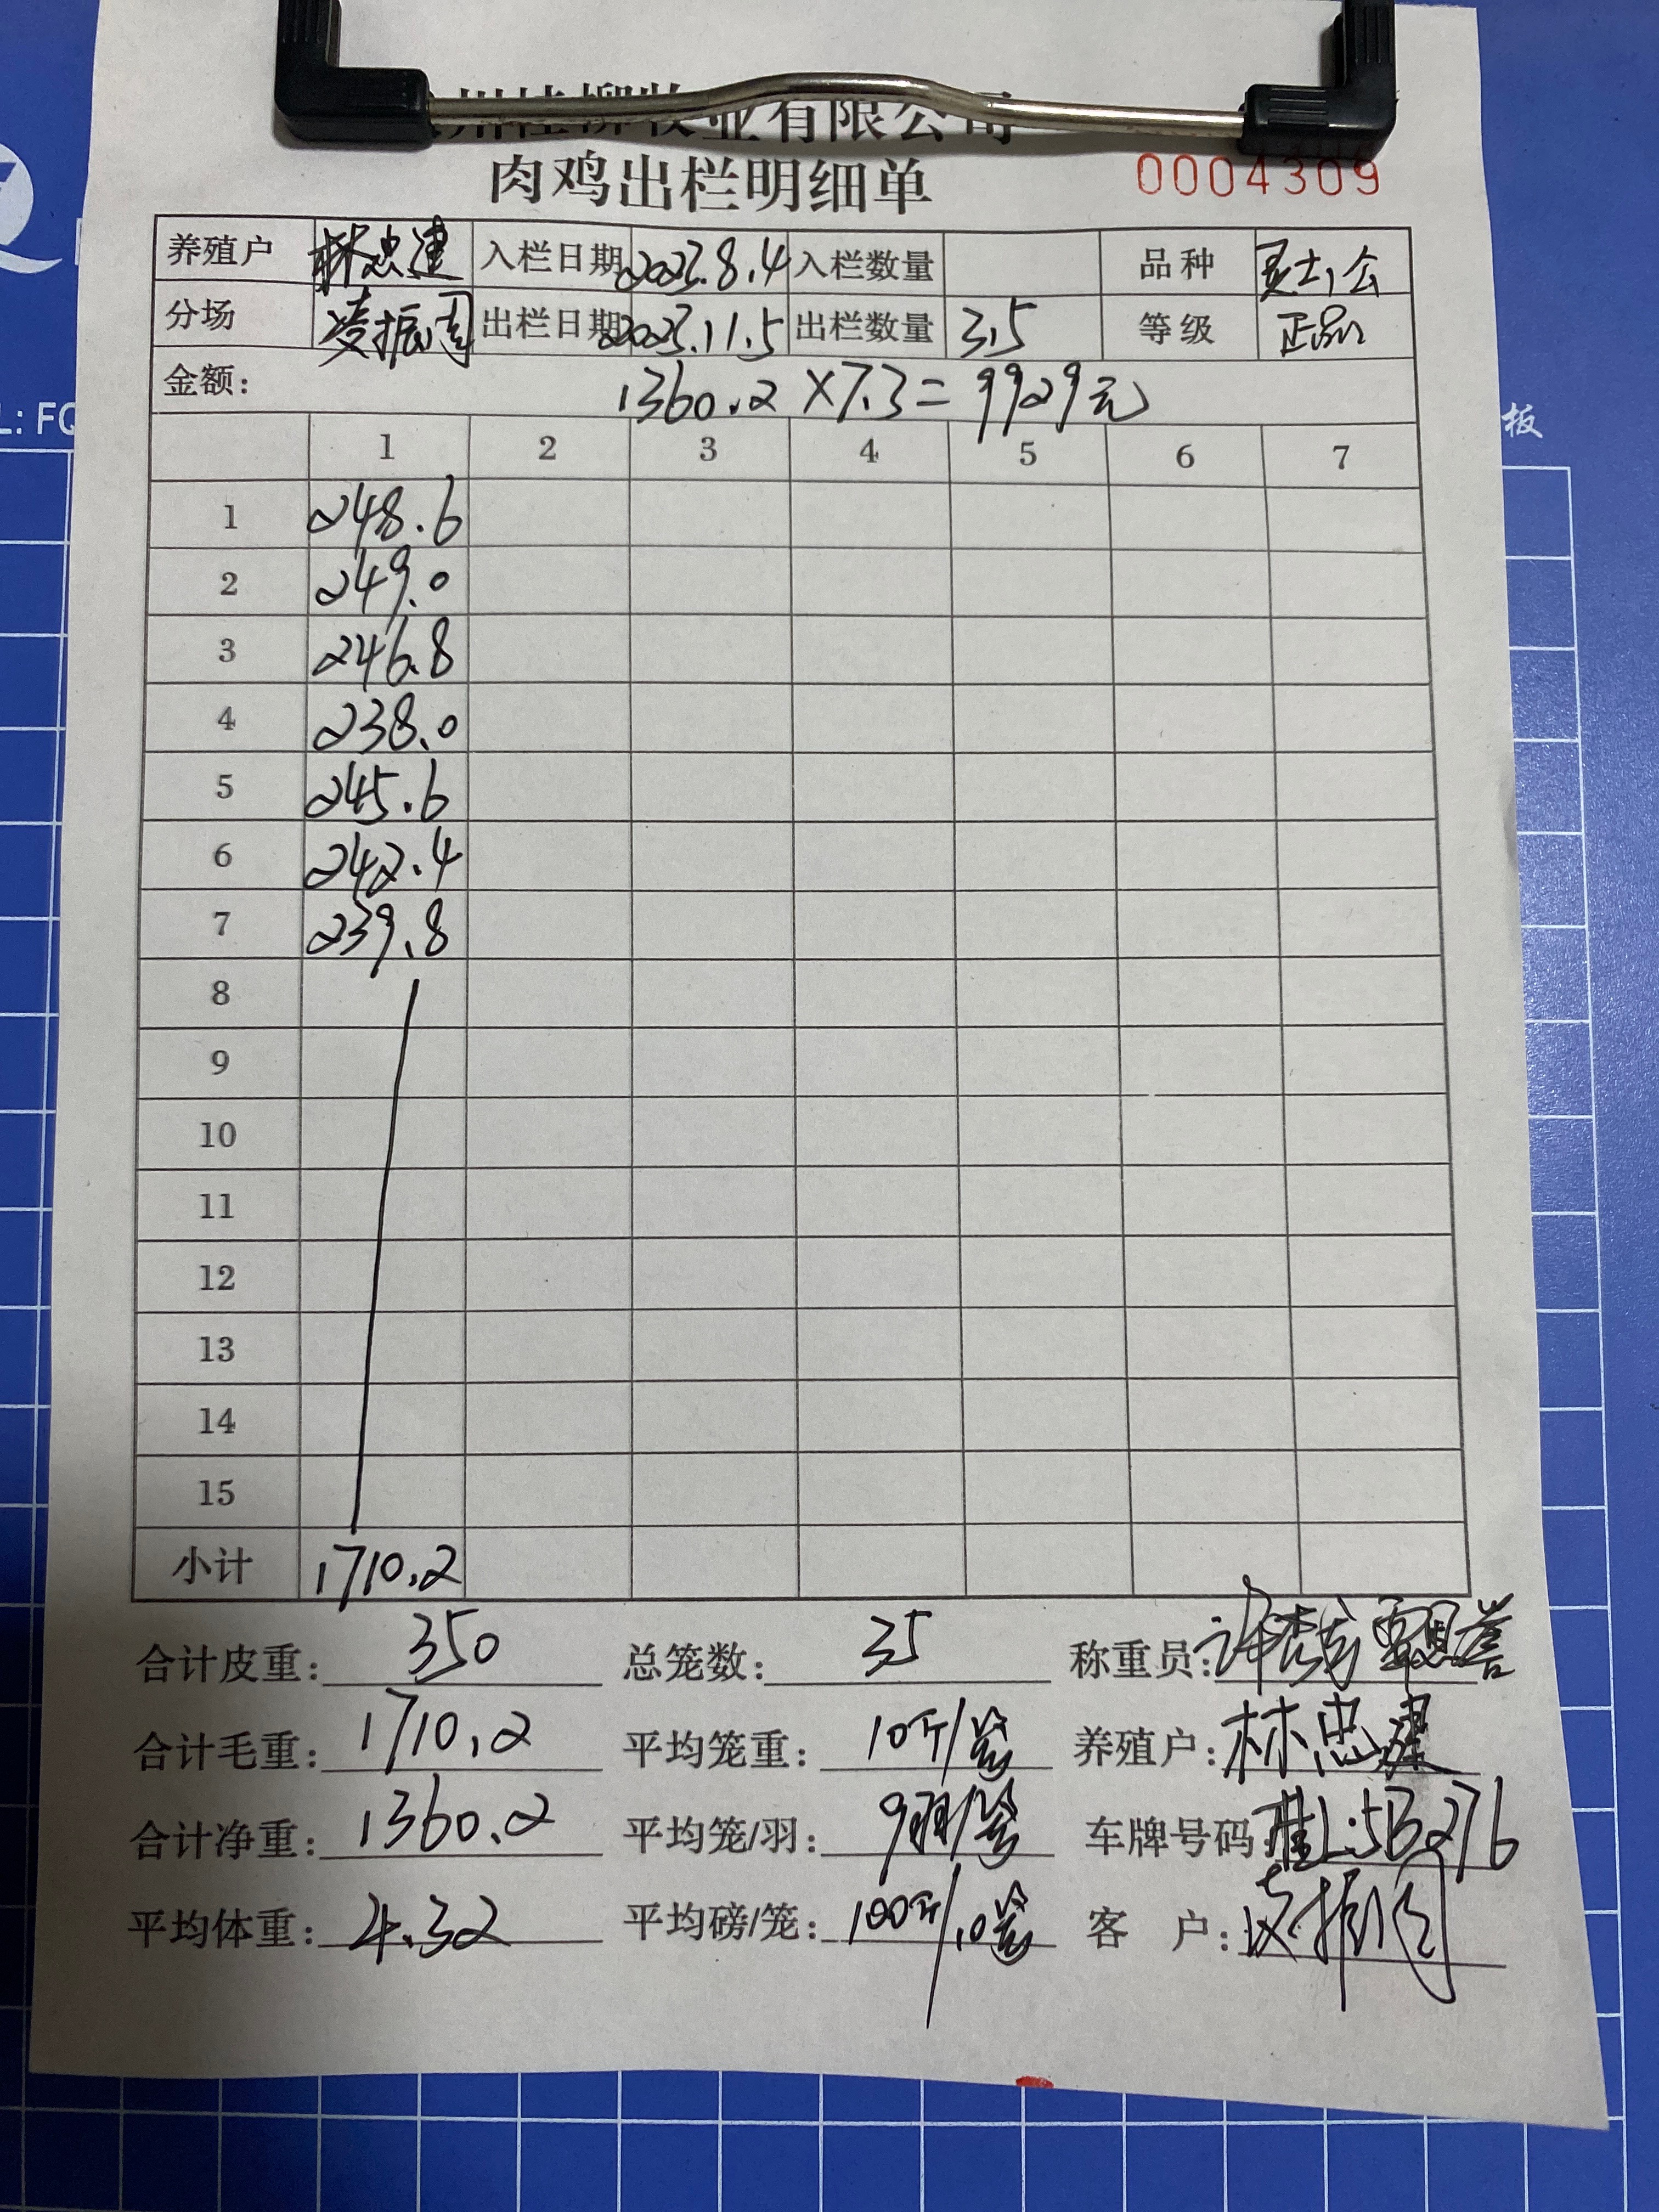 牧业有限公司
肉鸡出栏明细单 0004309
养殖户 林忠建 入栏日期 2023.8.4 入栏数量 品种
分场 凌振 出栏日期 2023.11.5 出栏数量 315 等级 正品
金额: 1360.2×7.3=9929元
1 2 3 4 5 6 7
1 248.6
2 249.0
3 246.8
4 238.0
5 245.6
6 242.4
7 239.8
8
9
10
11
12
13
14
15
小计 1710.2
合计皮重: 350 总笼数: 35 称重员: 许
合计毛重: 1710.2 平均笼重: 10斤/笼 养殖户: 林忠建
合计净重: 1360.2 平均笼/羽: 9羽/笼 车牌号码: 桂L·5B276
平均体重: 4.32 平均磅/笼: 100斤/10笼 客 户:
L: FQ
板